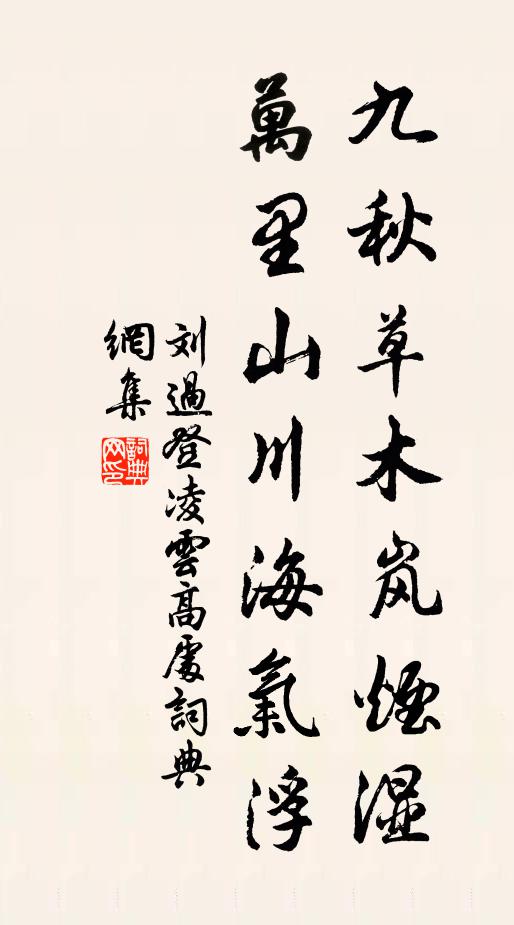 九秋草木岚煙湿
萬里山川海氣浮
刘過登凌雲高處詞典
網集
詞典网印